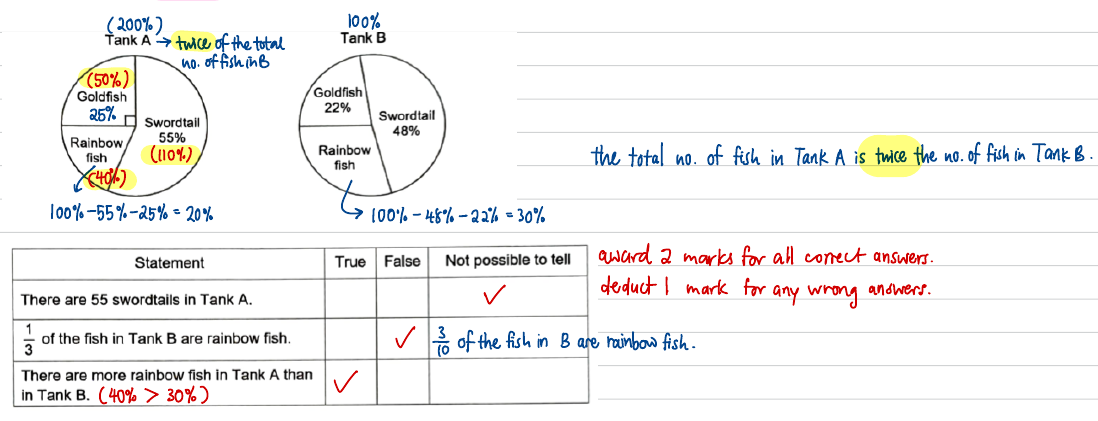 (200%)
Tank A → twice of the total
no. of fish in B
100%
Tank B
(50%)
Goldfish
25%
Swordtail
55%
(110%)
Rainbow
fish
(40%)
100% - 55% - 25% = 20%
Goldfish
22%
Swordtail
48%
Rainbow
fish
100% - 48% - 22% = 30%
the total no. of fish in Tank A is twice the no. of fish in Tank B.
Statement True False Not possible to tell
There are 55 swordtails in Tank A. ✓
1/3 of the fish in Tank B are rainbow fish. ✓ 3/10 of the fish in B are rainbow fish.
There are more rainbow fish in Tank A than
in Tank B. (40% > 30%) ✓
award 2 marks for all correct answers.
deduct 1 mark for any wrong answers.